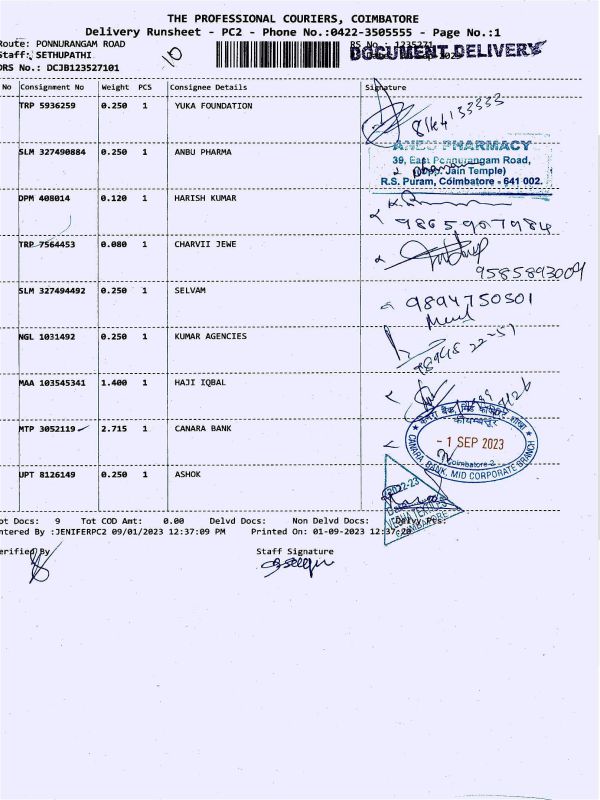 THE PROFESSIONAL COURIERS, COIMBATORE
Delivery Runsheet - PC2 - Phone No.:0422-3505555 - Page No.:1
Route: PONNURANGAM ROAD
RS No.: 1235271
Staff: SETHUPATHI
10
DOCUMENT DELIVERY
DRS No.: DCJB123527101
No Consignment No Weight PCS Consignee Details Signature
TRP 5936259 0.250 1 YUKA FOUNDATION
8164133333
SLM 327490884 0.250 1 ANBU PHARMA
ANBU PHARMACY
39, East Ponnurangam Road,
(Opp. Jain Temple)
R.S. Puram, Coimbatore - 641 002.
DPM 408014 0.120 1 HARISH KUMAR
9865907984
TRP 7564453 0.080 1 CHARVII JEWE
9585893009
SLM 327494492 0.250 1 SELVAM
9894750501
NGL 1031492 0.250 1 KUMAR AGENCIES
MAA 103545341 1.400 1 HAJI IQBAL
MTP 3052119 2.715 1 CANARA BANK
- 1 SEP 2023
Coimbatore-2
CANARA BANK, MID CORPORATE BRANCH
UPT 8126149 0.250 1 ASHOK
2022-23
COIMBATORE
ot Docs: 9 Tot COD Amt: 0.00 Delvd Docs: Non Delvd Docs: Delvy Pts:
ntered By :JENIFERPC2 09/01/2023 12:37:09 PM Printed On: 01-09-2023 12:37:20
erified By Staff Signature